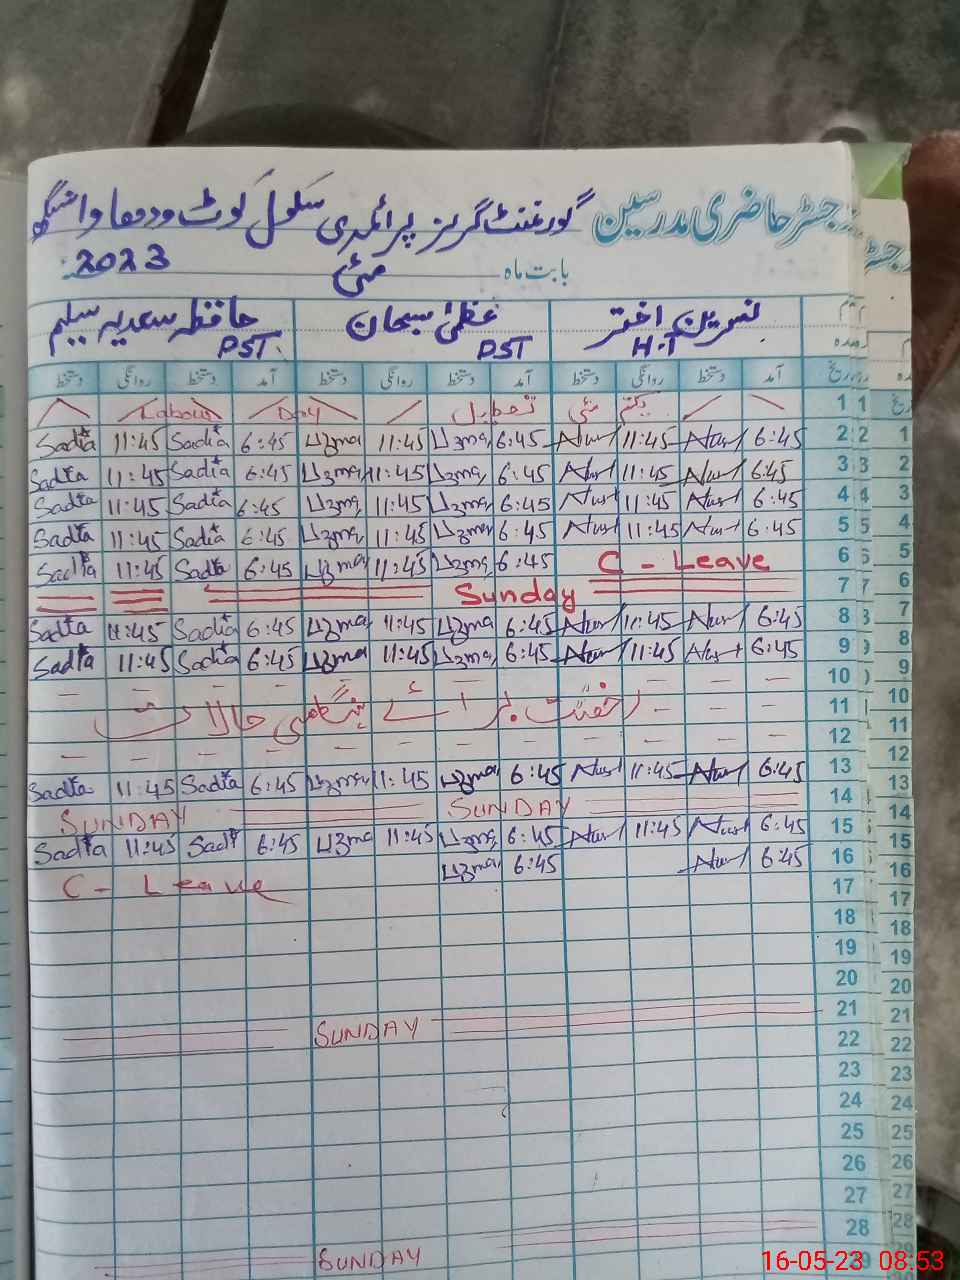 رجسٹر حاضری مدرسین گورنمنٹ گرلز پرائمری سکول کوٹ ودھاوا سنگھ
بابت ماہ مئی 2023
نسرین اختر عظمیٰ سبحان حافظہ سعدیہ سلیم
H.T PST PST
تاریخ آمد دستخط روانگی دستخط آمد دستخط روانگی دستخط آمد دستخط روانگی دستخط
1 یکم مئی تعطیل Labour Day
2 6:45 11:45 6:45 Uzma 11:45 Uzma 6:45 Sadia 11:45 Sadia
3 6:45 11:45 6:45 Uzma 11:45 Uzma 6:45 Sadia 11:45 Sadia
4 6:45 11:45 6:45 Uzma 11:45 Uzma 6:45 Sadia 11:45 Sadia
5 6:45 11:45 6:45 Uzma 11:45 Uzma 6:45 Sadia 11:45 Sadia
6 C - Leave 6:45 Uzma 11:45 Uzma 6:45 Sadia 11:45 Sadia
7 Sunday
8 6:45 11:45 6:45 Uzma 11:45 Uzma 6:45 Sadia 11:45 Sadia
9 6:45 11:45 6:45 Uzma 11:45 Uzma 6:45 Sadia 11:45 Sadia
10
11 حالات
12
13 6:45 11:45 6:45 Uzma 11:45 Uzma 6:45 Sadia 11:45 Sadia
14 SUNDAY SUNDAY
15 6:45 11:45 6:45 Uzma 11:45 Uzma 6:45 Sadia 11:45 Sadia
16 6:45 6:45 Uzma C - Leave
17
18
19
20
21 SUNDAY
22
23
24
25
26
27
28 SUNDAY
16-05-23 08:53